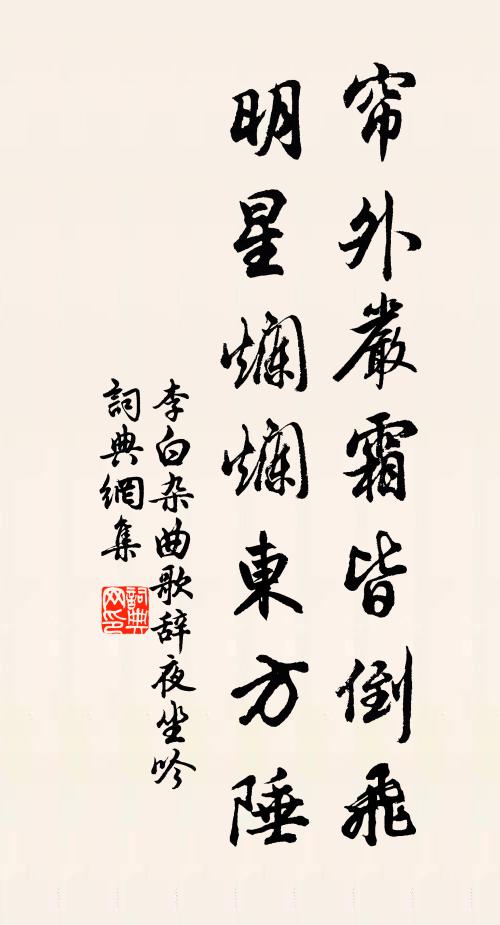 帘外嚴霜皆倒飛
明星爛爛東方陲
李白杂曲歌辞夜坐吟
詞典網集
詞典网印